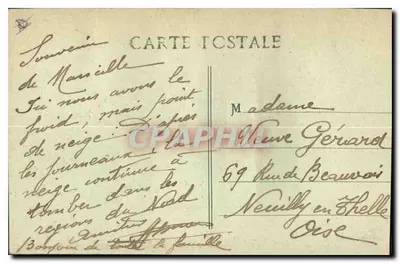 CARTE POSTALE
Souvenir
de Marseille
Ici nous avons le
froid, mais point
de neige. D'après
les journeaux, la
neige continue à
tomber dans les
regions du Nord
Amitiés
Bonjour de toute la famille
Madame
Veuve Gérard
69 Rue de Beauvais
Neuilly en Thelle
Oise